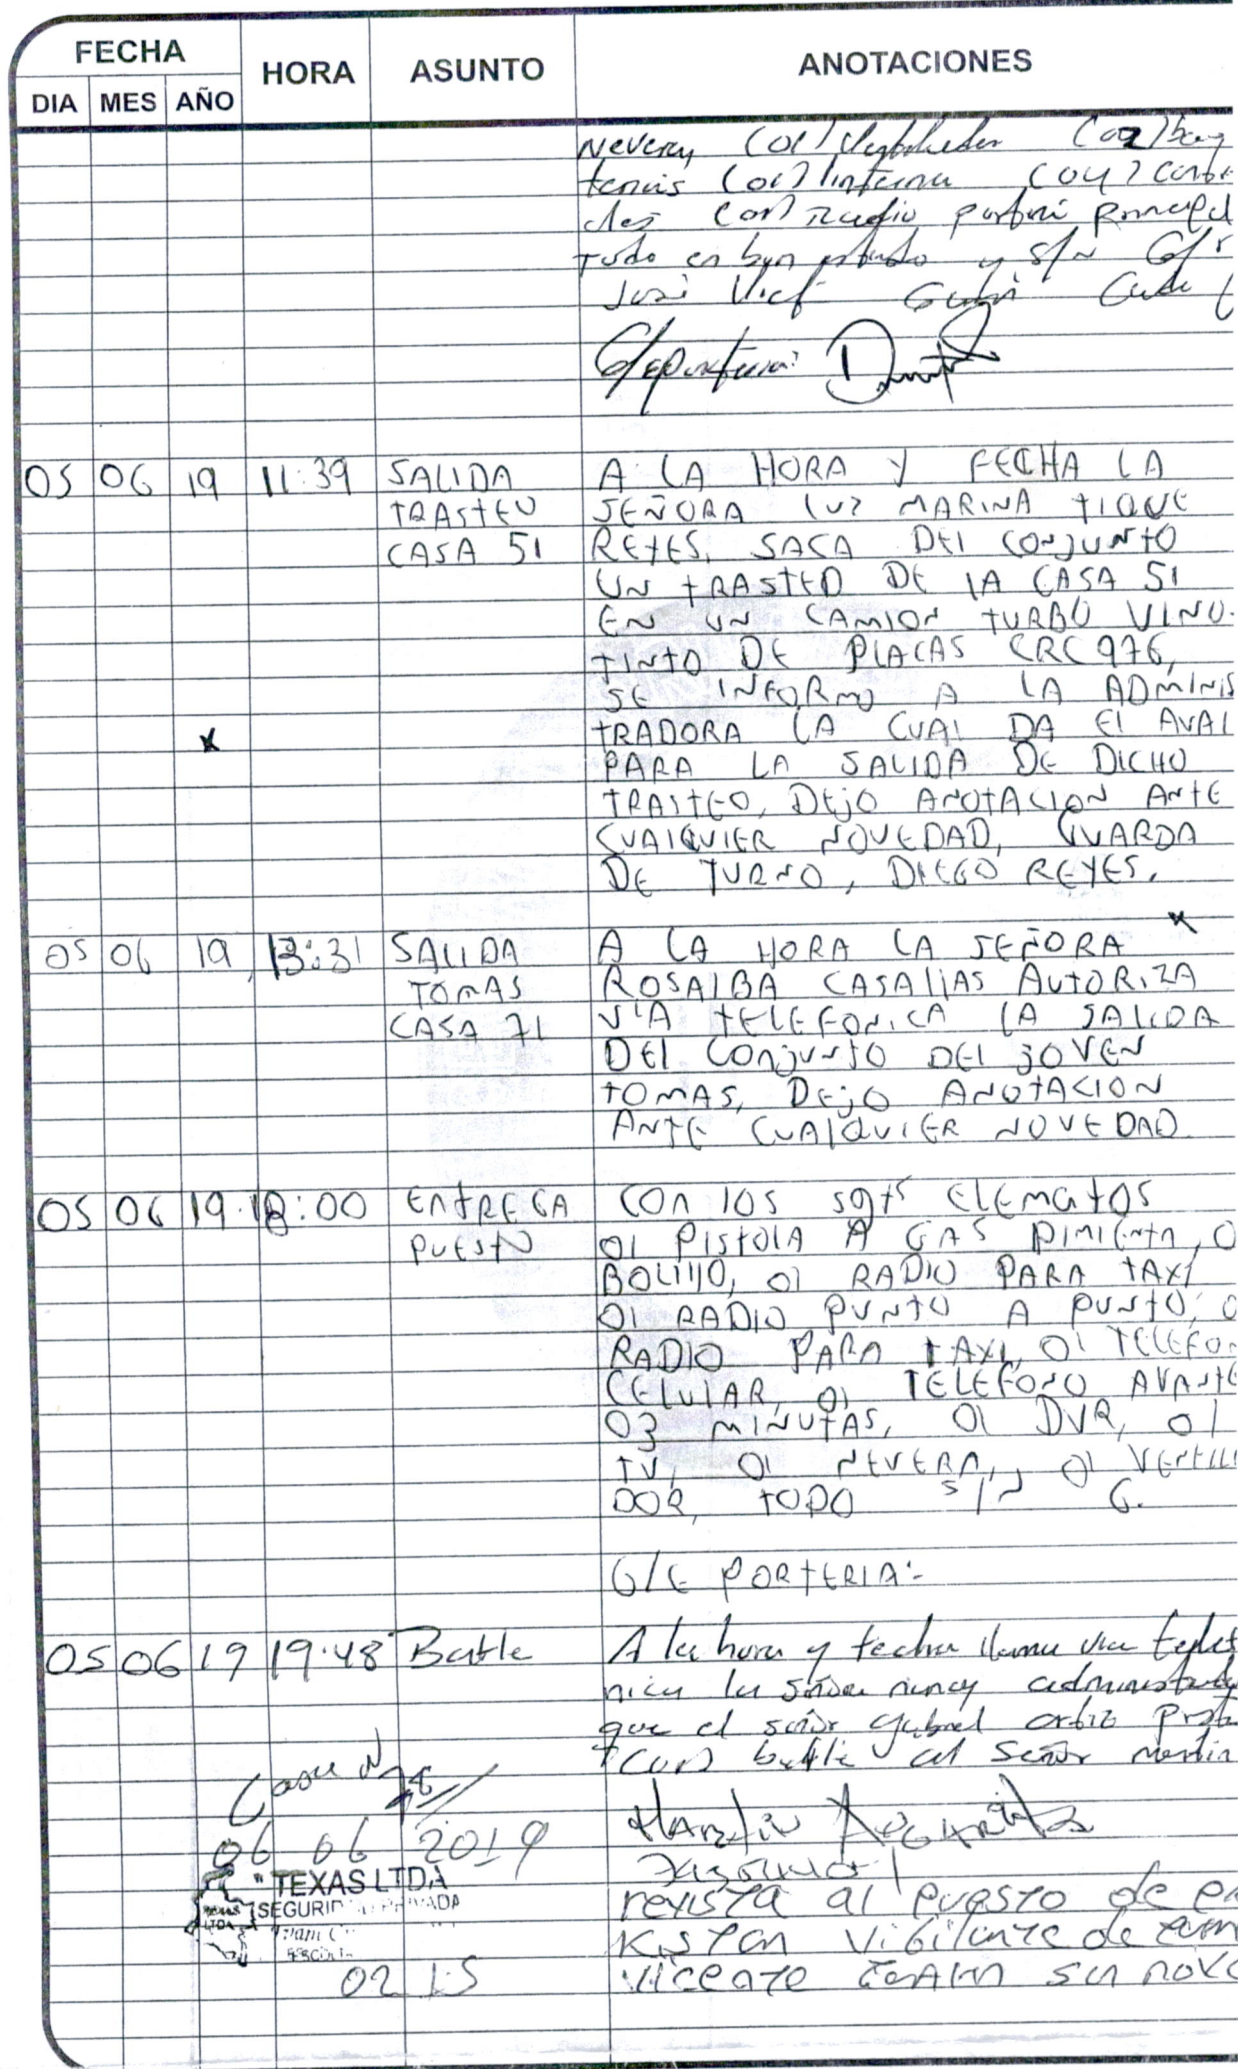 FECHA HORA ASUNTO ANOTACIONES
DIA MES AÑO
(01) (02)
(01) linterna (04)
radio
todo en buen estado y s/n
José
05 06 19 11:39 SALIDA A LA HORA Y FECHA LA
TRASTEO SEÑORA LUZ MARINA TIQUE
CASA 51 REYES, SACA DEL CONJUNTO
UN TRASTEO DE LA CASA 51
EN UN CAMION TURBO VINO-
TINTO DE PLACAS CRC 976,
SE INFORMO A LA ADMINIS
TRADORA LA CUAL DA EL AVAL
PARA LA SALIDA DE DICHO
TRASTEO, DEJO ANOTACION ANTE
CUALQUIER NOVEDAD, GUARDA
DE TURNO, DIEGO REYES.
05 06 19 13:31 SALIDA A LA HORA LA SEÑORA
TOMAS ROSALBA CASALLAS AUTORIZA
CASA 71 VIA TELEFONICA LA SALIDA
DEL CONJUNTO DEL JOVEN
TOMAS, DEJO ANOTACION
ANTE CUALQUIER NOVEDAD.
05 06 19 18:00 ENTREGA CON LOS sgts ELEMATOS
PUESTO 01 PISTOLA A GAS PIMIENTA, 0
BOLILLO, 01 RADIO PARA TAXI
01 RADIO PUNTO A PUNTO, 0
RADIO PARA TAXI, 01 TELEFON
CELULAR, 01 TELEFONO AVANTE
03 MINUTAS, 01 DVR, 01
TV, 01 NEVERA, 01 VENTILA
DOR, TODO S/N G.
G/E PORTERIA:
05 06 19 19:48 A la hora y fecha llama via telef
nica la señora nancy administrad
que el señor gabriel ortiz
al señor martin
Casa N 78
06 06 2019
TEXAS LTDA
SEGURIDAD PRIVADA
revista al puesto de
vigilante de turn
02 15 sin nove